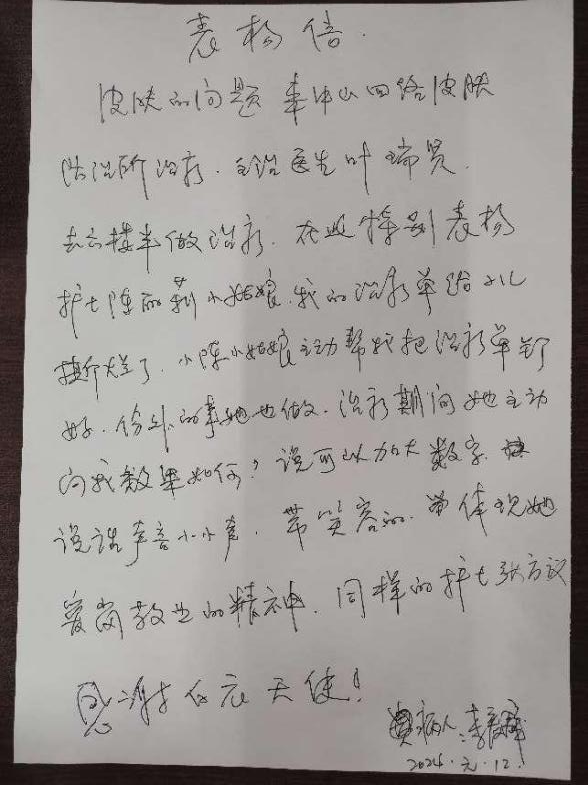 表扬信.
皮肤的问题 来中山四路皮肤
防治所治疗. 主治医生叶瑞贤.
去六楼半做治疗. 在此特别表扬
护士陈丽莉小姑娘. 我的治疗单给小儿
撕烂了. 小陈小姑娘主动帮我把治疗单钉
好. 份外的事她也做. 治疗期间她主动
问我效果如何? 说可以加大数字.
说话声音小小声. 带笑容的. 体现她
爱岗敬业的精神. 同样的护士张方议
感谢白衣天使!
病人: 李
2024.元.12.